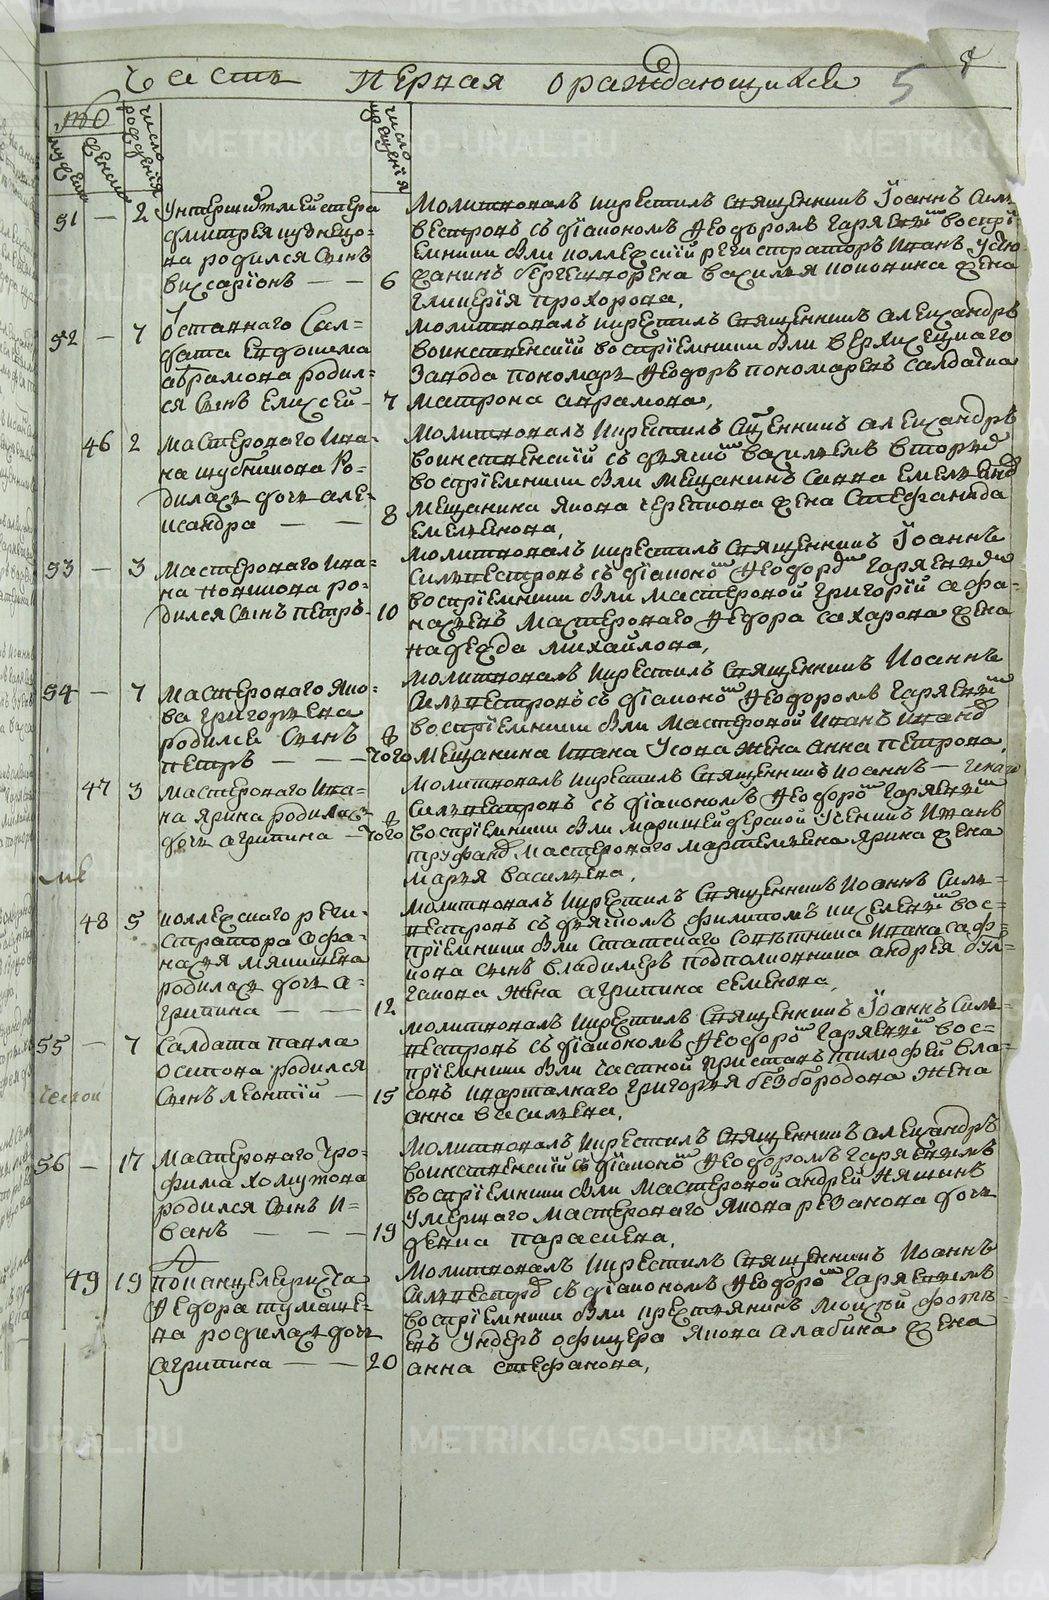 Часть первая о раждающихся 5
число рожденїя
число крещенїя
51 — 2 Унтершихтмейстера
дмитрея кузнецо-
ва родился сынъ
виссарїонъ — — 6
Молитвовалъ и крестилъ священникъ Їоаннъ Силь-
вестровъ съ дїакономъ Ѳеодоромъ Гаряевымъ воспрї-
емники были коллежскїй регистраторъ иванъ
жена
гликерїя прохорова,
52 — 7 Отставнаго Сал-
дата Евдокима
абрамова родил-
ся сынъ Елисей — 7
Молитвовалъ и крестилъ священникъ александръ
воинственскїй воспрїемники были верхисецкаго
завода пономарь Ѳеодоръ пономаревъ салдатка
Матрона аврамова,
46 2 Мастероваго ива-
на шубникова ро-
дилась дочь але-
ксандра — — 8
Молитвовалъ и крестилъ Священникъ александръ
воинственскїй съ дьячкомъ васильемъ вторымъ
воспрїемники были Мещанинъ Савва Емельяновъ
Мещанина якова черепанова жена Стефанида
Емельянова,
53 — 3 Мастероваго ива-
на новикова ро-
дился сынъ петръ — 10
Молитвовалъ и крестилъ священникъ Їоаннъ
Сильвестровъ съ дїакономъ Ѳеодоромъ Гаряевымъ
воспрїемники были Мастеровой григорїй афа-
насьевъ Мастероваго Ѳедора сахарова жена
надежда михайлова,
54 — 7 Мастероваго яко-
ва григорьева
родился сынъ
петръ — — — того ж
Молитвовалъ и крестилъ священникъ Иоаннъ
Сильвестровъ съ дїакономъ Ѳеодоромъ Гаряевымъ
воспрїемники были Мастеровой иванъ ивановъ
Мещанина ивана Усова жена анна петрова,
47 3 Мастероваго ива-
на ярина родилась
дочь агрипина — того ж
Молитвовалъ и крестилъ священникъ иоаннъ —
Сильвестровъ съ дїакономъ Ѳеодоромъ Гаряевымъ
воспрїемники были маркшейдерской ученикъ иванъ
труфановъ Мастероваго мартемьяна ярина жена
марья васильева,
48 5 коллежскаго реги-
стратора афа-
насья мякишева
родилась дочь а-
грипина — — — 12
Молитвовалъ и крестилъ священникъ иоаннъ Силь-
вестровъ съ дьячкомъ филипомъ киселевымъ вос-
прїемники были статскаго совѣтника ивана саф-
кова сынъ владимеръ подполковника андрея бул-
гакова жена агрипина семенова,
55 — 7 Салдата павла
осипова родился
сынъ леонтїй — 15
Молитвовалъ и крестилъ священникъ Їоаннъ Силь-
вестровъ съ дїакономъ Ѳеодоромъ Гаряевымъ вос-
прїемники были частной приставъ тимофей вла-
совъ квартальнаго григорья безбородова жена
анна васильева,
56 — 17 Мастероваго тро-
фима хомутова
родился сынъ и-
ванъ — — — 19
Молитвовалъ и крестилъ священникъ александръ
воинственскїй съ дїакономъ Ѳеодоромъ Гаряевымъ
воспрїемники были Мастеровой андрей
умершаго мастероваго якова резанова дочь
девка парасковья,
49 19 Подканцеляриста
Ѳедора тумаше-
ва родилась дочь
агрипина — — — 20
Молитвовалъ и крестилъ священникъ Иоаннъ
Сильвестровъ съ дїакономъ Ѳеодоромъ Гаряевымъ
воспрїемники были крестьянинъ Моисей фоте-
евъ Ундеръ офицера якова алабина жена
анна стефанова,